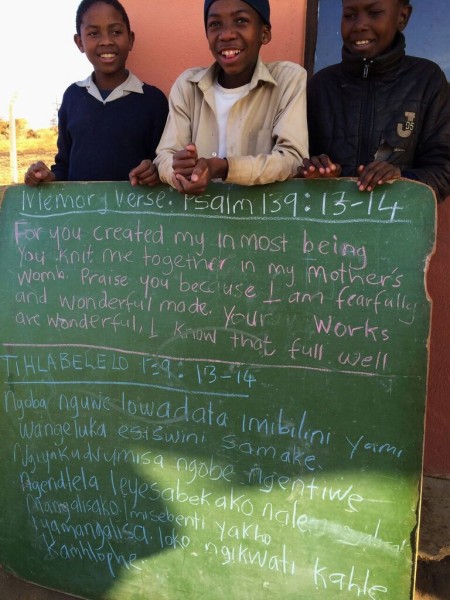 Memory Verse: Psalm 139:13-14
For you created my inmost being
You knit me together in my Mother's
womb. Praise you because I am fearfully
and wonderful made. Your works
are wonderful, I know that full well
TIHLABELELO 139:13-14
Ngoba nguwe lowadata imibilini yami
wangeluka esiswini samake.
Ngiyakudvumisa ngobe ngentiwe
Ngendlela leyesabekako nale
Mangalisako Imisebenti yakho
Iyamangalisa loko ngikwati kahle
Kamhlophe.
J